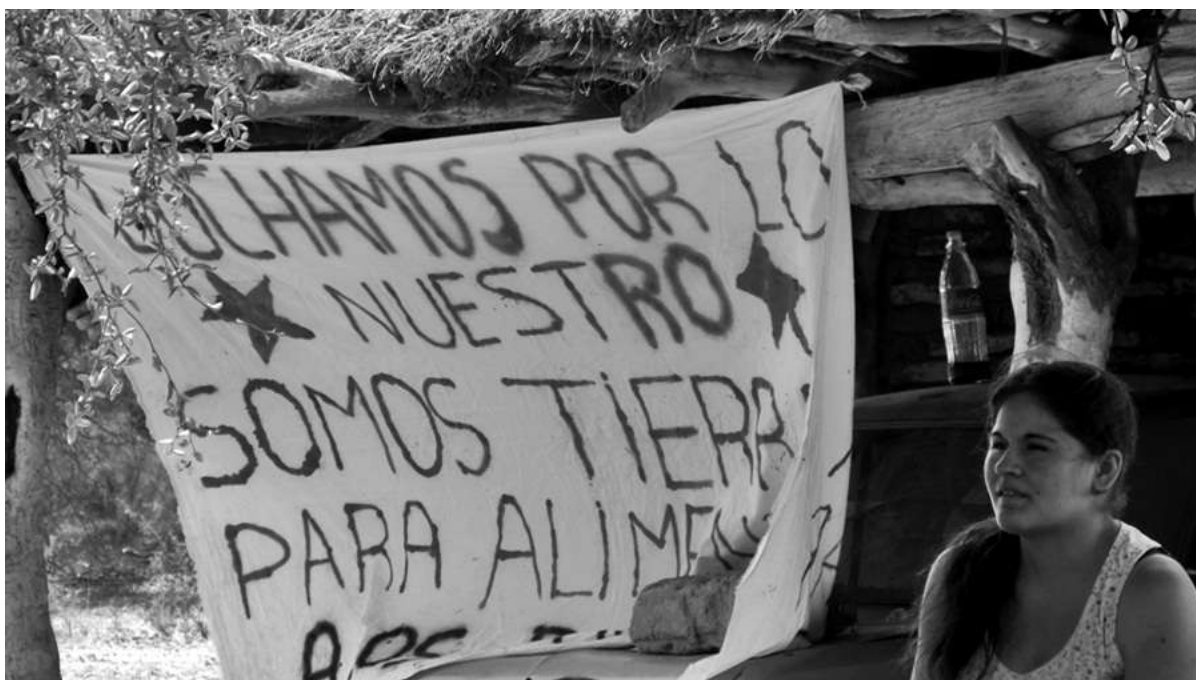 LUCHAMOS POR LO
NUESTRO
SOMOS TIERRA
PARA ALIMENTA